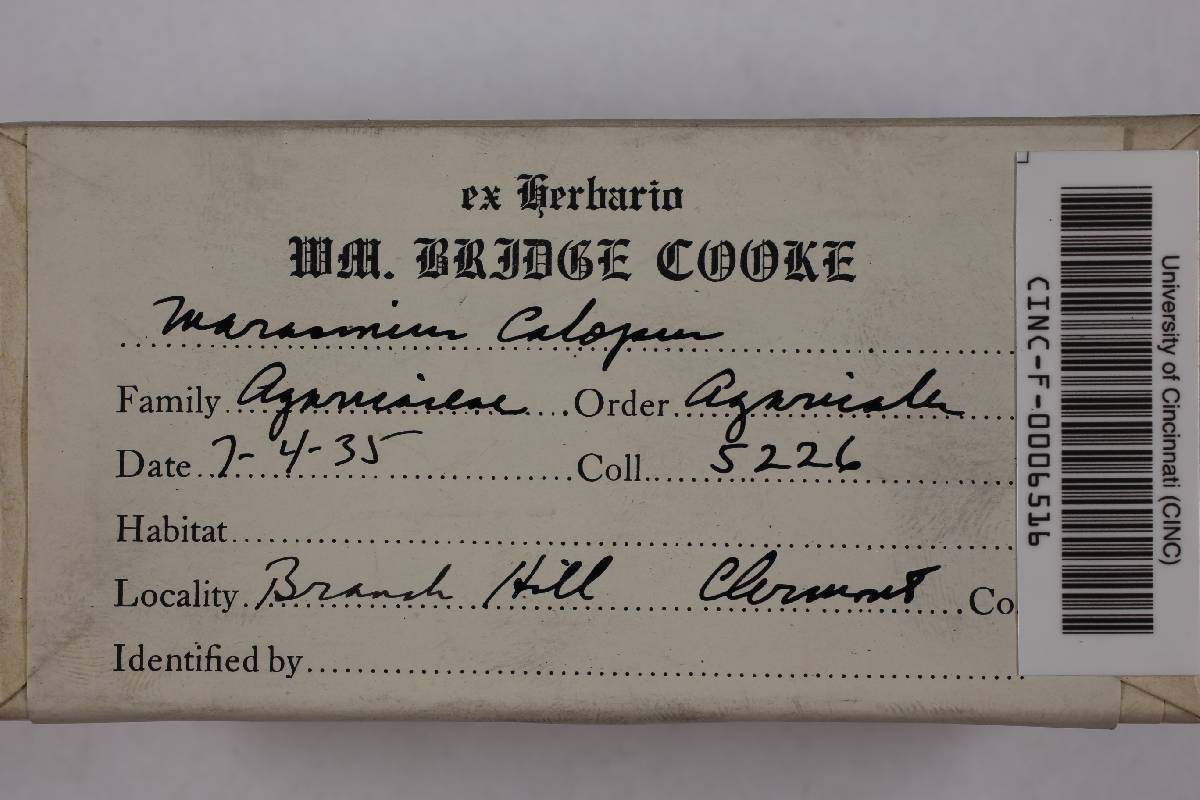 ex Herbario
WM. BRIDGE COOKE
Marasmius Calopus
Family Agaricaceae Order Agaricales
Date 7-4-35 Coll. 5226
Habitat
Locality Branch Hill Clermont Co
Identified by
University of Cincinnati (CINC)
CINC-F-0006516